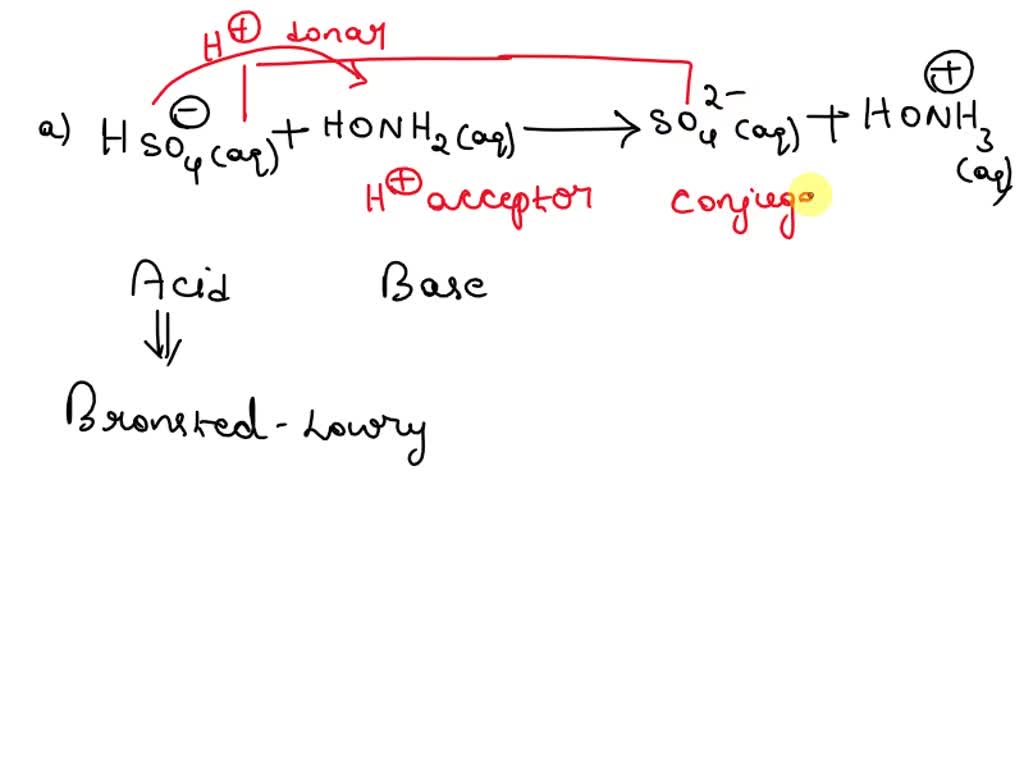 H⊕ donar
a) HSO₄⊖(aq) + HONH₂(aq) ⟶ SO₄²⁻(aq) + HONH₃⊕(aq)
H⊕ acceptor conjuga
Acid Base
⇓
Bronsted-Lowry